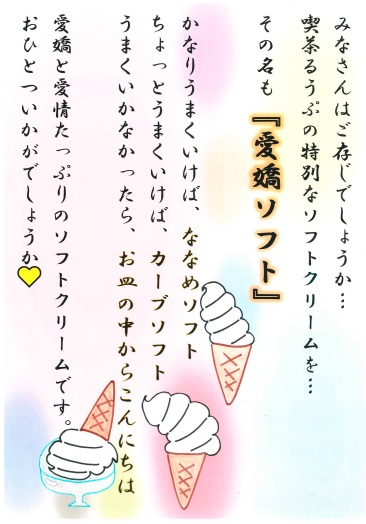 みなさんはご存じでしょうか…
喫茶るうぷの特別なソフトクリームを…
その名も
『愛嬌ソフト』
かなりうまくいけば、ななめソフト
ちょっとうまくいけば、カーブソフト
うまくいかなかったら、お皿の中からこんにちは
愛嬌と愛情たっぷりのソフトクリームです。
おひとついかがでしょうか💛